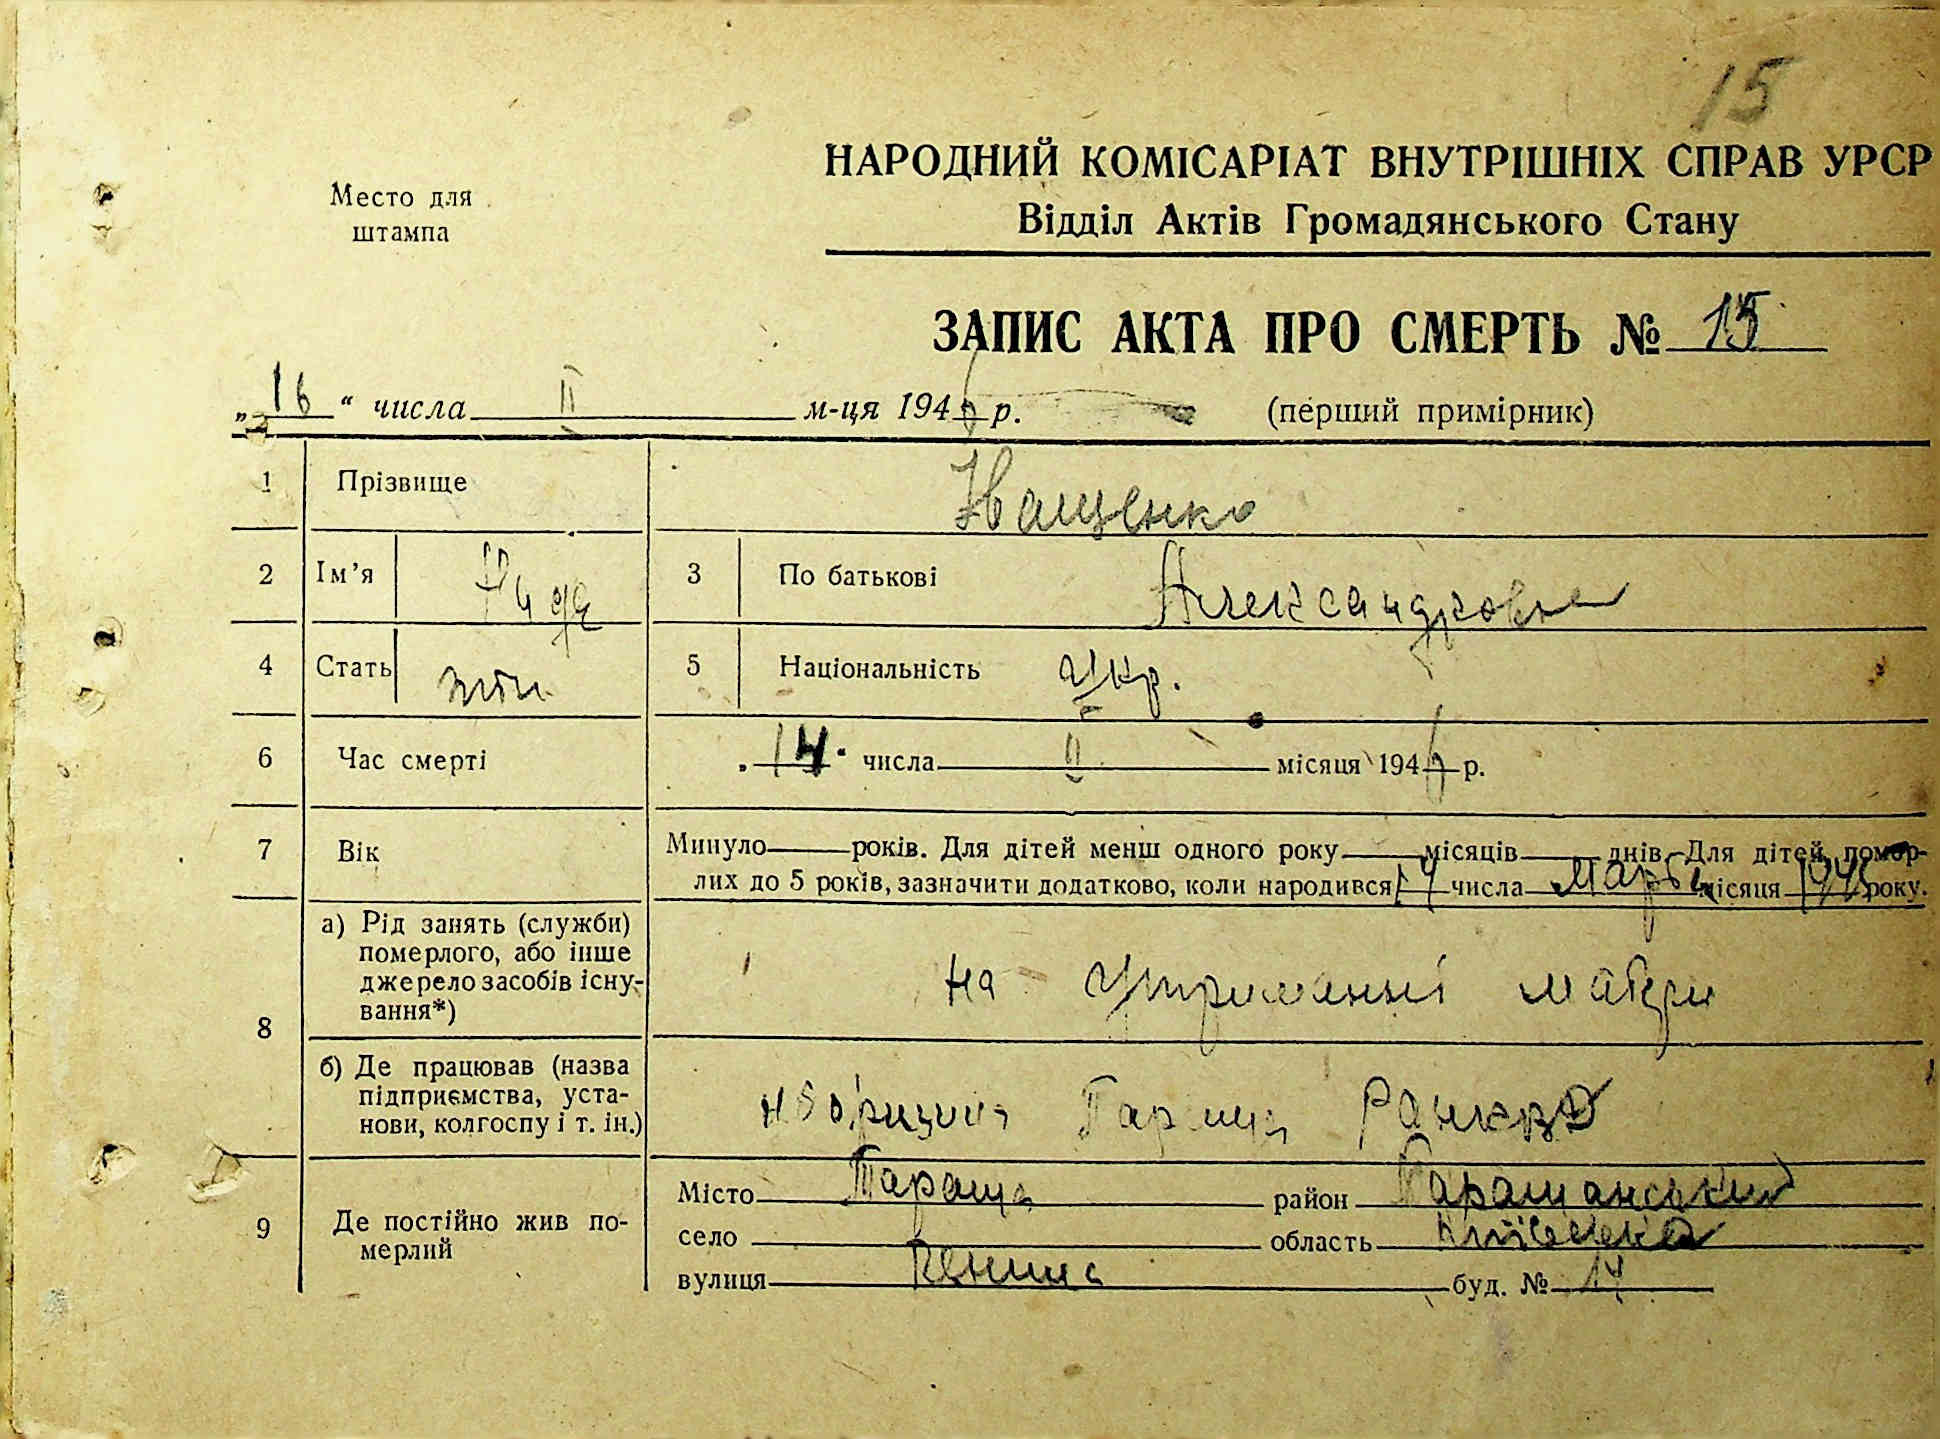 15
НАРОДНИЙ КОМІСАРІАТ ВНУТРІШНІХ СПРАВ УРСР
Відділ Актів Громадянського Стану
Место для
штампа
ЗАПИС АКТА ПРО СМЕРТЬ № 15
„16“ числа II м-ця 1946 р. (перший примірник)
1 Прізвище Иващенко
2 Ім’я Надя 3 По батькові Александровна
4 Стать жін. 5 Національність Укр.
6 Час смерті 14 числа II місяця 1946 р.
7 Вік Минуло року років. Для дітей менш одного року місяців днів. Для дітей, помер-
лих до 5 років, зазначити додатково, коли народився 14 числа Марта місяця 1945 року.
8 а) Рід занять (служби)
померлого, або інше
джерело засобів існу-
вання*)
на утриманні матери
б) Де працював (назва
підприємства, уста-
нови, колгоспу і т. ін.)
9 Де постійно жив по-
мерлий
Місто Тараща район Таращанський
село область Київська
вулиця Леніна буд. № 14